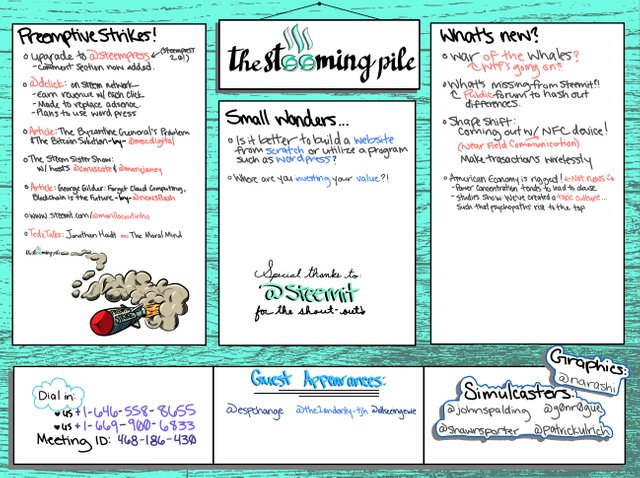 Preemptive Strikes!
upgrade to @steempress (steempress 2.0!)
- Comment section now added.
@dclick: on steem network -
- Earn revenue w/ each click
- Made to replace adsense.
- Plans to use word press
Article: The Byzantine General's Problem
& The Bitcoin Solution - by - @mscdigital
The Steem Sister Show:
w/ hosts @coruscate & @marujaney
Article: George Gildur: Forget Cloud Computing,
Blockchain is the Future - by - @newsflash
www.steemit.com/@marillacoutinho
Ted Talks: Jonathan Haidt on: The Moral Mind
the steeming pile
Small Wonders...
Is it better to build a website
from scratch or utilize a program
such as wordpress?
Where are you investing your value?!
Special thanks to:
@Steemit
for the shout-outs
What's new?
War of the Whales?
WTF's going on?
What's missing from Steemit?!
Public forum to hash out
differences.
Shape Shift:
Coming out w/ NFC device!
(Near Field Communication)
Make trasactions wirelessly
American Economy is rigged! ← Not news
- Power concentration tends to lead to abuse
- Studies show: We've created a toxic culture...
such that psychopaths rise to the top
Dial in:
US +1-646-558-8655
US +1-669-900-6833
Meeting ID: 468-186-430
Guest Appearances:
@espchange @the2ndonly-tjh
Simulcasters:
@johnspalding @g0nr0gue
@shawnsporter @patrickulrich
Graphics:
@narashi